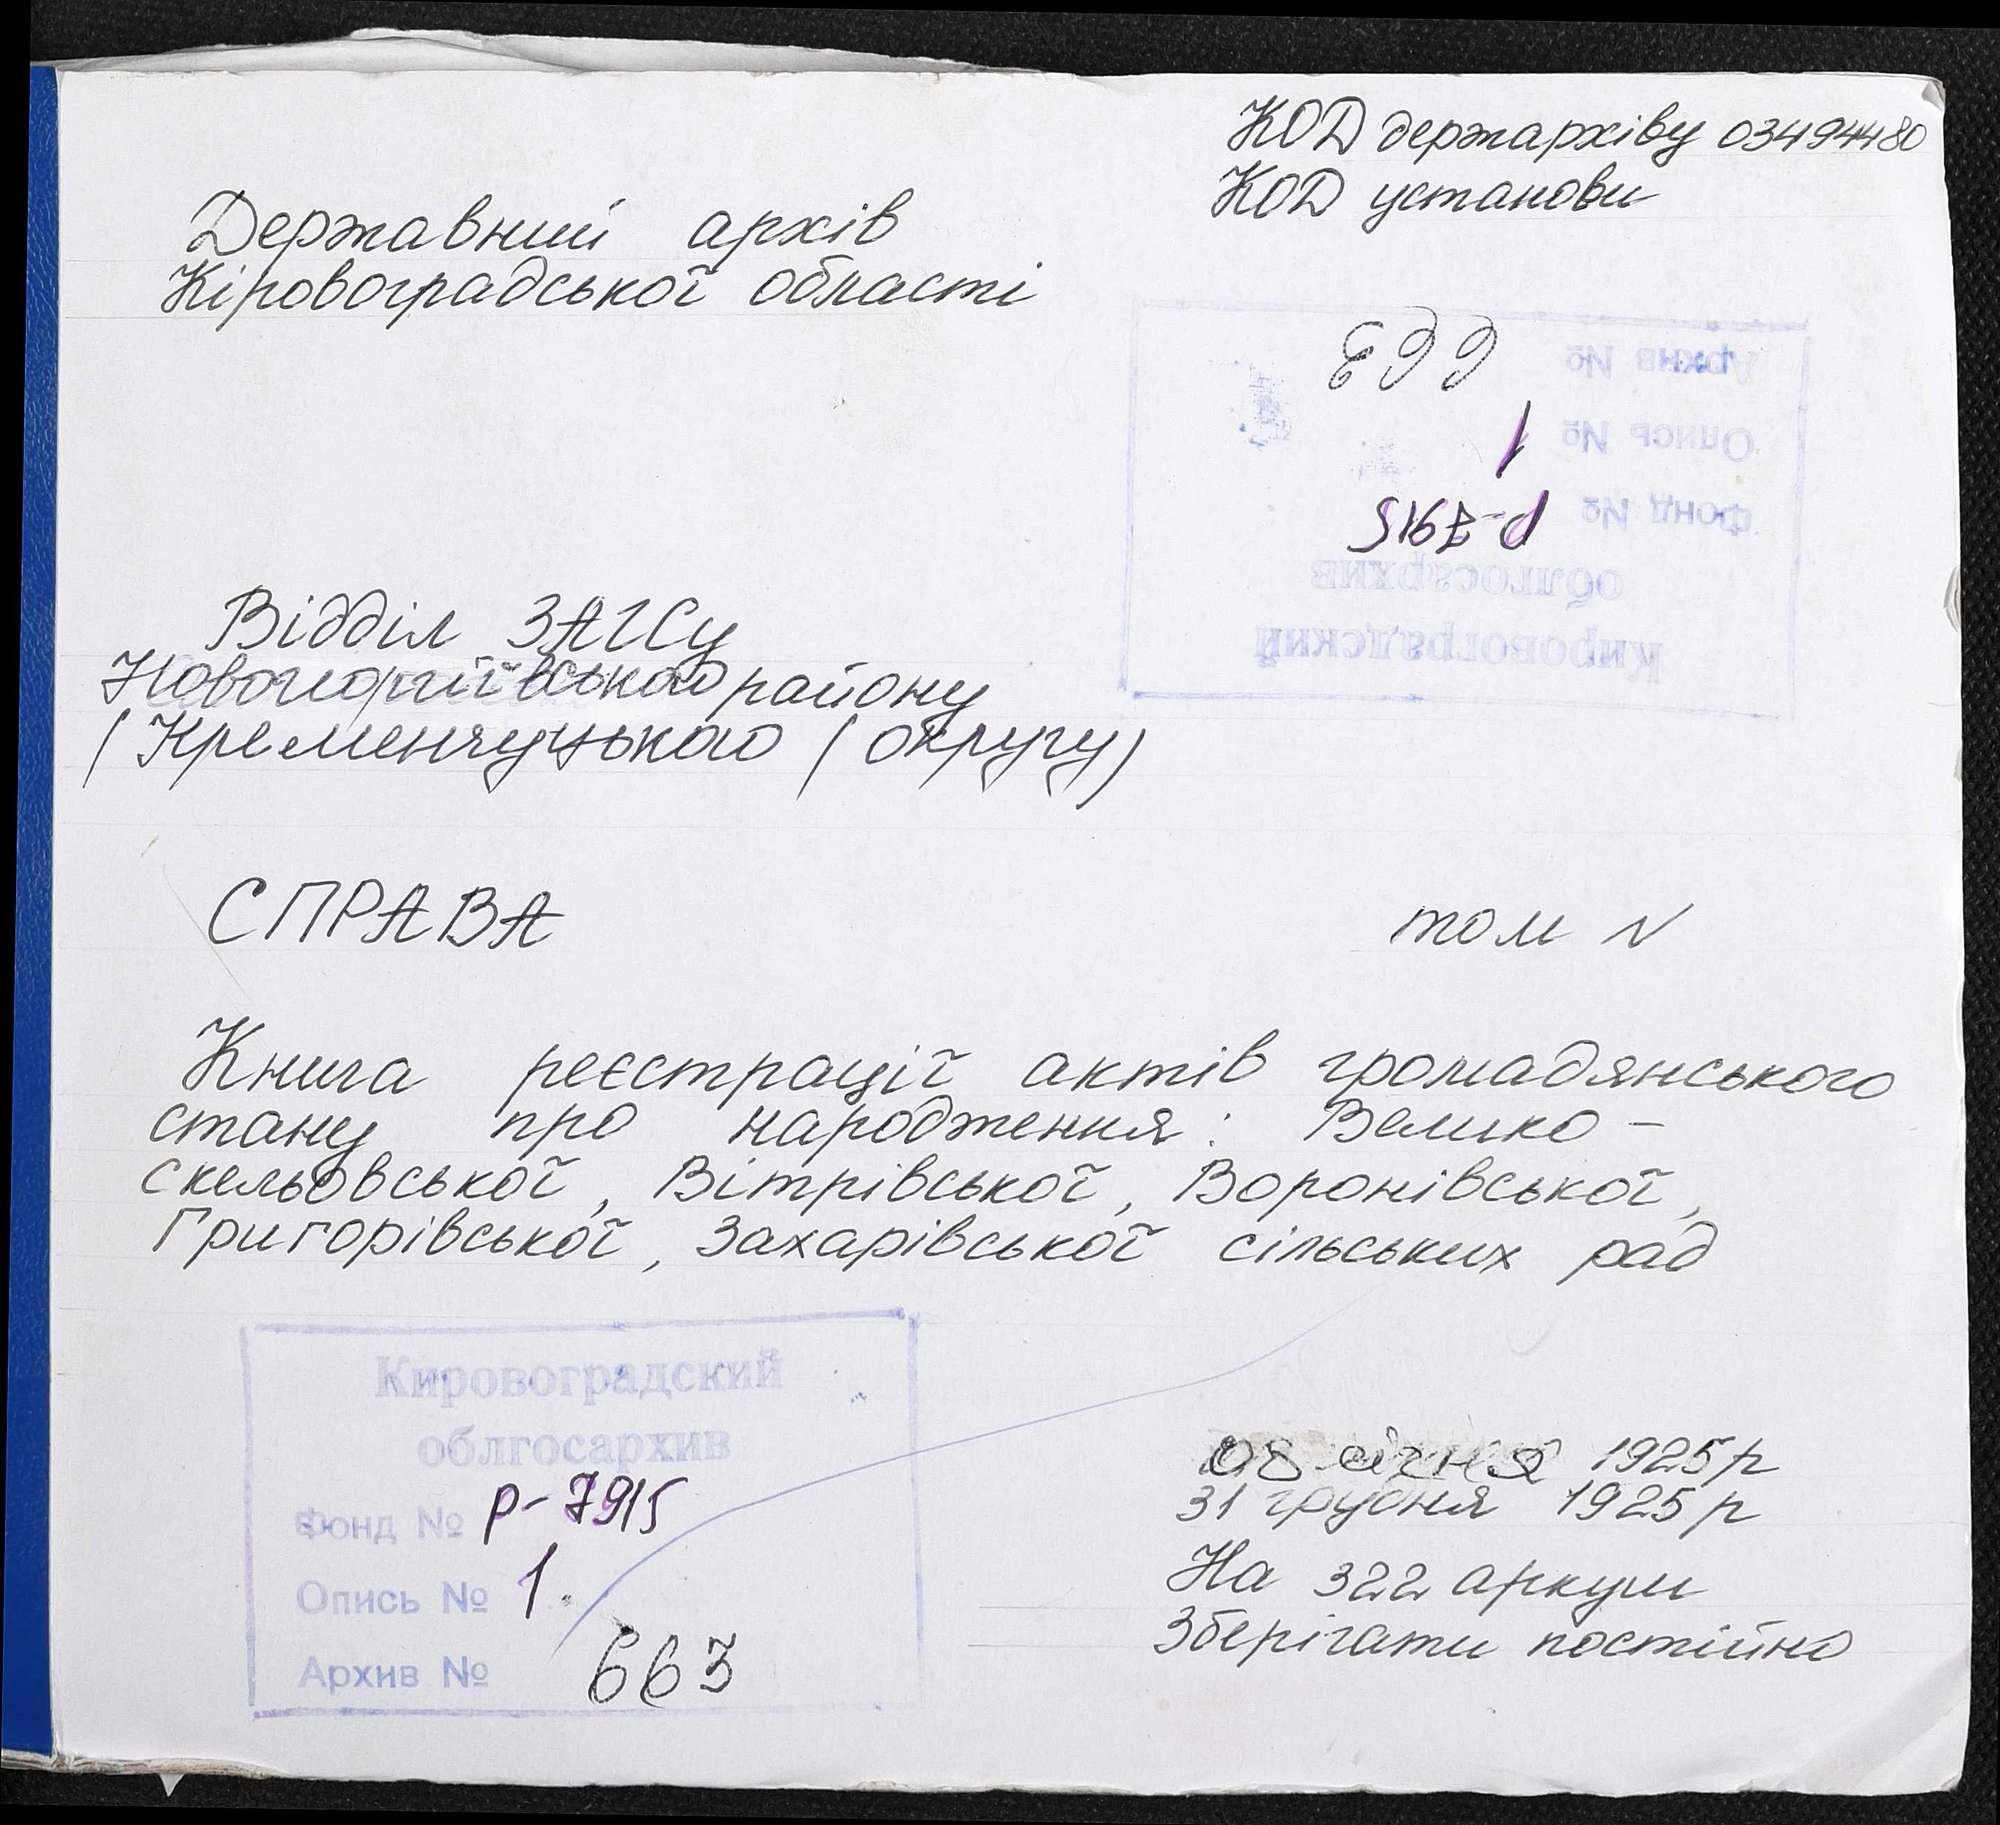 КОД держархіву 03494480
КОД установи
Державний архів
Кіровоградської області
Кировоградский
облгосархив
Фонд № р-7915
Опись № 1
Архив № 663
Відділ ЗАГСу
Новогеоргіївського району
(Кременчуцького (округу)
СПРАВА
том N
Книга реєстрації актів громадянського
стану про народження: Велико-
скельовської, Вітрівської, Воронівської,
Григорівської, Захарівської сільських рад
Кировоградский
облгосархив
Фонд № р-7915
Опись № 1.
Архив № 663
08 січня 1925р
31 грудня 1925р
На 322 аркуш
Зберігати постійно